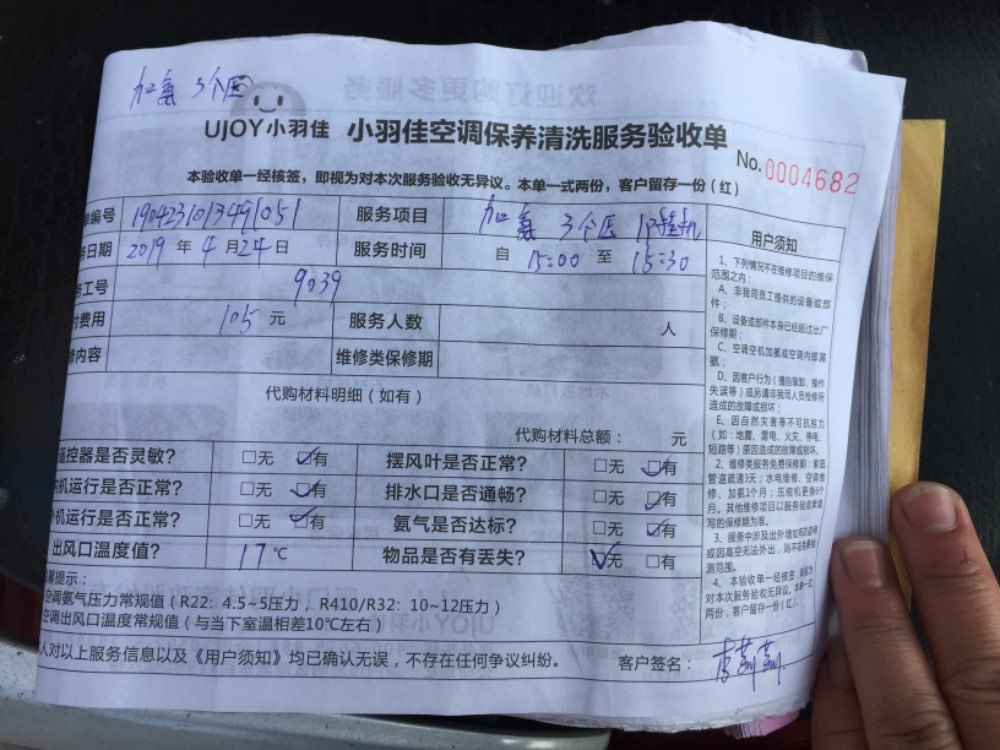 加氨 3个压
UJOY小羽佳 小羽佳空调保养清洗服务验收单
No.0004682
本验收单一经核签，即视为对本次服务验收无异议。本单一式两份，客户留存一份（红）
单编号 1904231013491051 服务项目 加氨 3个压 1P挂机
务日期 2019 年 4 月 24 日 服务时间 自 15:00 至 15:30
工号 9039
付费用 105 元 服务人数 人
修内容 维修类保修期
代购材料明细（如有）
代购材料总额： 元
遥控器是否灵敏? □无 ☑有 摆风叶是否正常? □无 ☑有
机运行是否正常? □无 ☑有 排水口是否通畅? □无 ☑有
外机运行是否正常? □无 ☑有 氨气是否达标? □无 ☑有
出风口温度值? 17 ℃ 物品是否有丢失? ☑无 □有
提示：
空调氨气压力常规值（R22: 4.5~5压力，R410/R32: 10~12压力）
空调出风口温度常规值（与当下室温相差10℃左右）
人对以上服务信息以及《用户须知》均已确认无误，不存在任何争议纠纷。
客户签名：
用户须知
1、下列情况不在维修项目的维保
范围之内：
A、非我司员工提供的设备或部
件；
B、设备或部件本身已经超过出厂
保修期；
C、空调空机加氨或空调内部漏
氨；
D、因客户行为（擅自装卸、操作
失误等）或另请非我司人员检修所
造成的故障或损坏；
E、因自然灾害等不可抗拒力
（如：地震、雷电、火灾、停电、
短路等）原因造成的故障或损坏。
2、维修类服务免费保修期：家庭
管道疏通3天；水电维修、空调维
修、加氨1个月；压缩机更换6个
月。其他维修项目以服务验收单填
写的保修期为准。
3、服务中涉及出外墙如有防盗网
或因高空无法外出，则不在
测范围。
4、本验收单一经核签，即视为
对本次服务验收无异议，本单一式
两份，客户留存一份（红）。